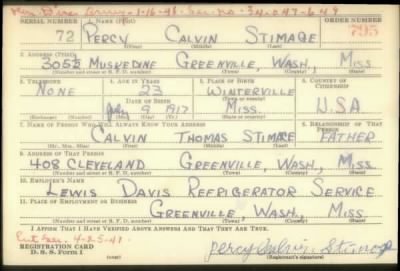 SERIAL NUMBER 1. NAME (Print) ORDER NUMBER
72 PERCY CALVIN STIMAGE 795
(First) (Middle) (Last)
2. ADDRESS (Print)
305½ MUSKEDINE GREENVILLE, WASH., MISS
(Number and street or R. F. D. number) (Town) (County) (State)
3. TELEPHONE 4. AGE IN YEARS 5. PLACE OF BIRTH 6. COUNTRY OF CITIZENSHIP
NONE 23 WINTERVILLE
DATE OF BIRTH (Town or county)
July 9 1917 MISS. USA
(Exchange) (Number) (Mo.) (Day) (Yr.) (State or country)
7. NAME OF PERSON WHO WILL ALWAYS KNOW YOUR ADDRESS 8. RELATIONSHIP OF THAT PERSON
CALVIN THOMAS STIMAGE FATHER
(Mr., Mrs., Miss) (First) (Middle) (Last)
9. ADDRESS OF THAT PERSON
408 CLEVELAND GREENVILLE, WASH., MISS
(Number and street or R. F. D. number) (Town) (County) (State)
10. EMPLOYER'S NAME
LEWIS DAVIS REFRIGERATOR SERVICE
11. PLACE OF EMPLOYMENT OR BUSINESS
GREENVILLE, WASH., MISS.
(Number and street or R. F. D. number) (Town) (County) (State)
I AFFIRM THAT I HAVE VERIFIED ABOVE ANSWERS AND THAT THEY ARE TRUE.
4-25-41.
REGISTRATION CARD Percy Calvin Stimage
D. S. S. Form 1 (over) (Registrant's signature)